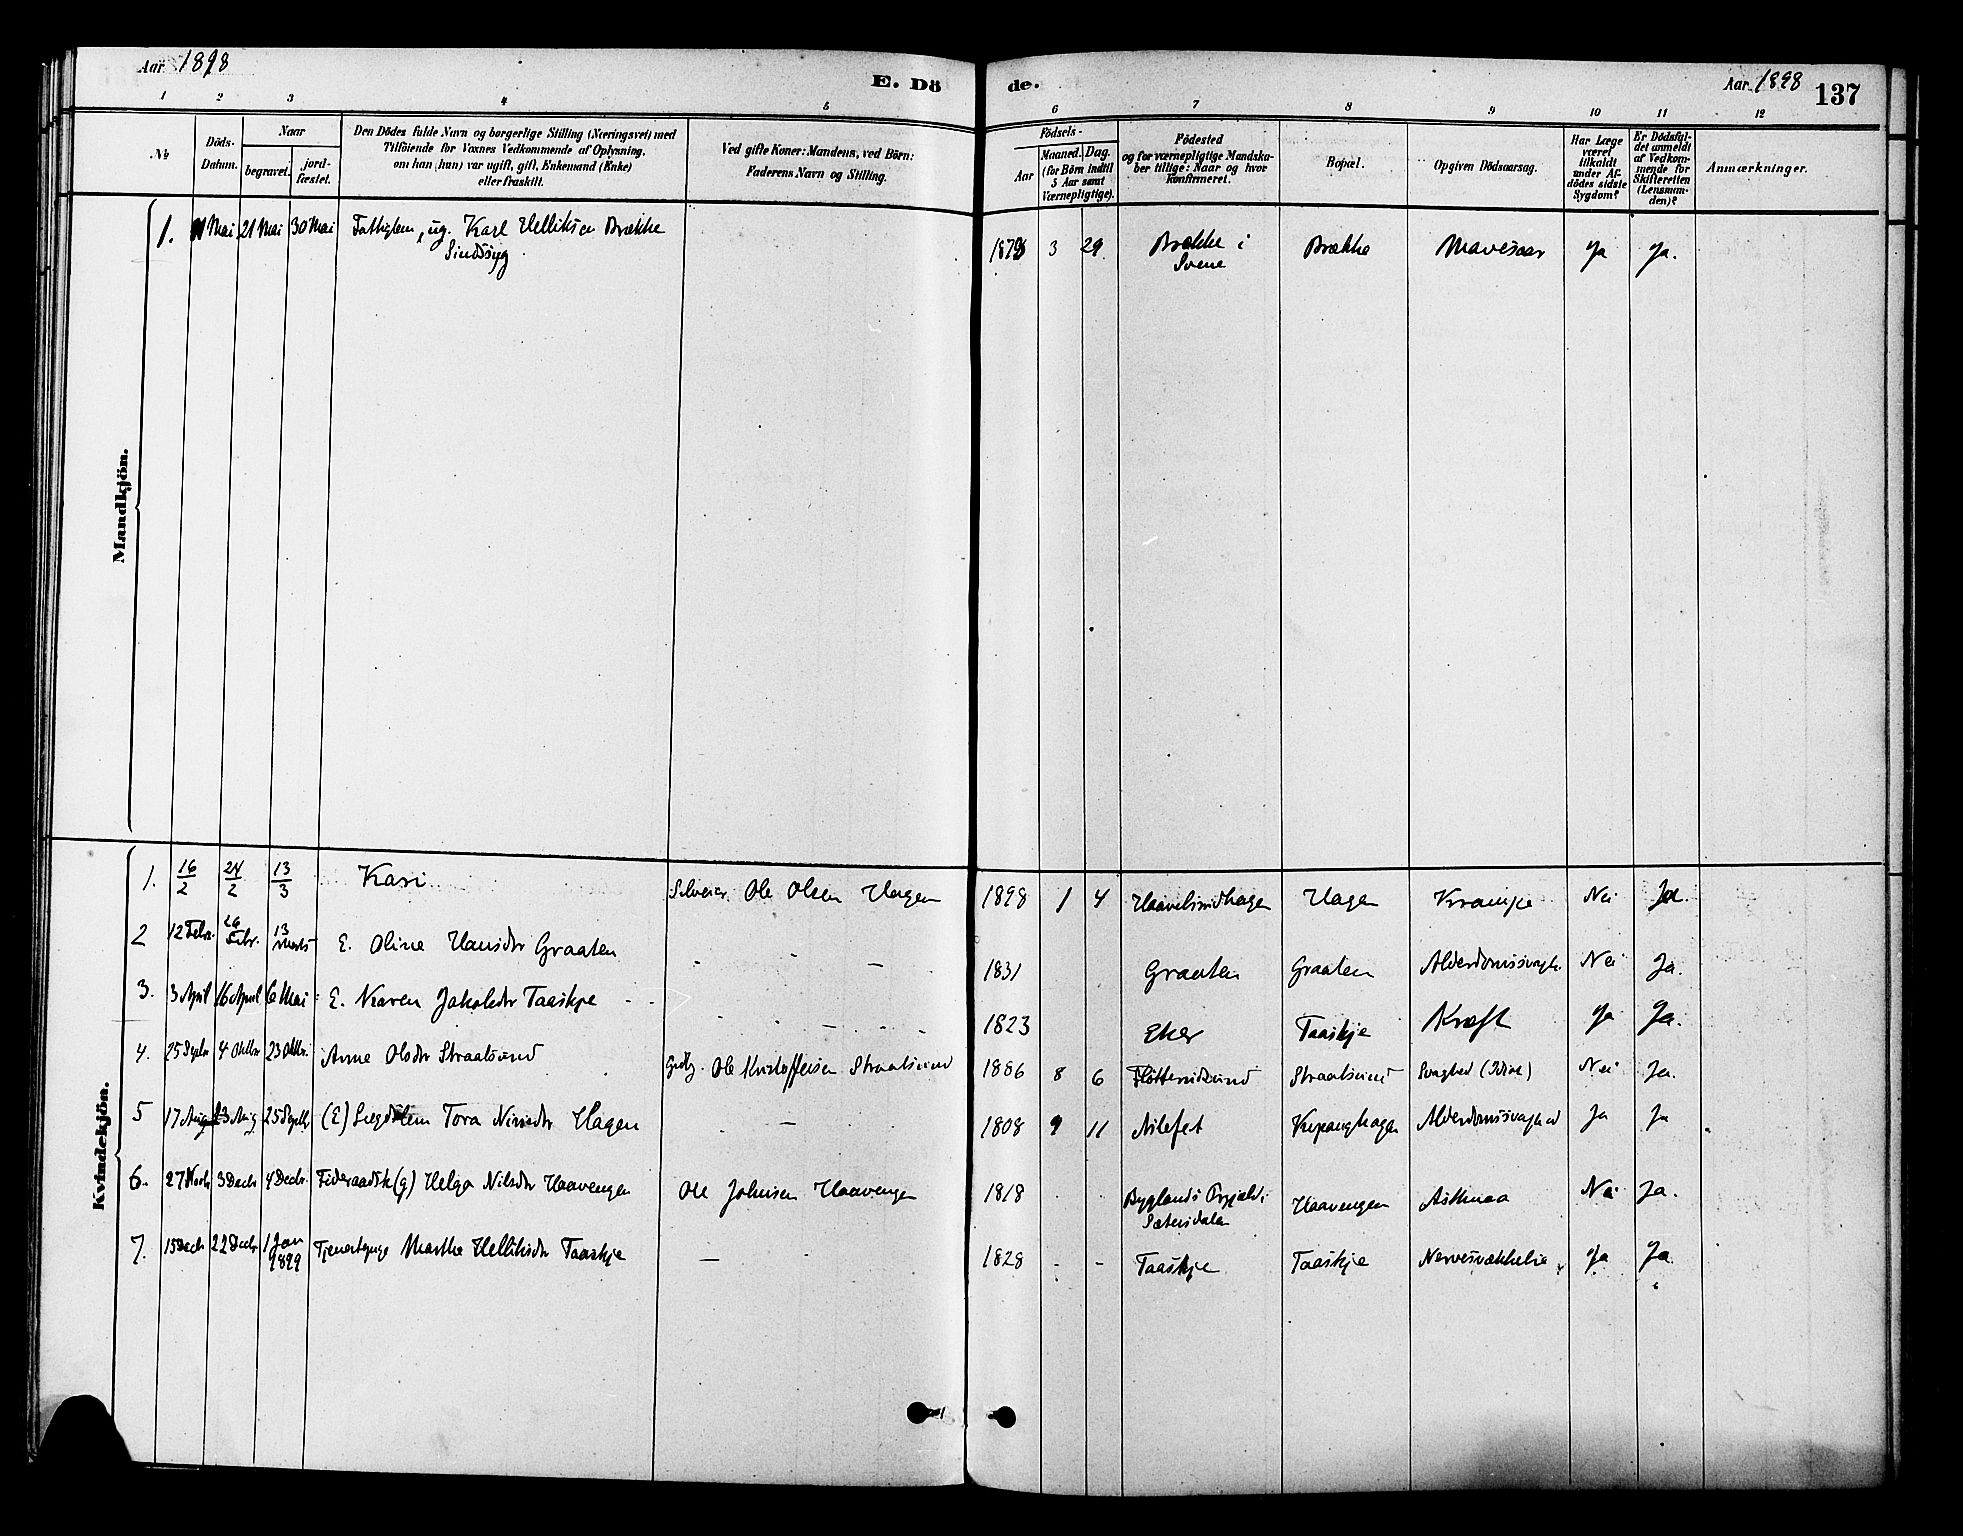 Aar 1898
E. Dö
de.
Aar 1898
137
1 2 3 4 5 6 7 8 9 10 11 12
No
Döds-
Datum.
Naar
begravet.
jord-
fæstet.
Den Dödes fulde Navn og borgerlige Stilling (Næringsvei) med
Tilföiende for Voxnes Vedkommende af Oplysning,
om han (hun) var ugift, gift, Enkemand (Enke)
eller fraskilt.
Ved gifte Koner: Mandens, ved Börn:
Faderens Navn og Stilling.
Födsels-
Aar
Maaned. Dag.
(for Börn indtil
5 Aar samt
Værnepligtige).
Födested
og for værnepligtige Mandska-
ber tillige: Naar og hvor
Konfirmeret.
Bopæl.
Opgiven Dödsaarsag.
Har Læge
været
tilkaldt
under Af-
dödes sidste
Sygdom?
Er Dödsfal-
det anmeldt
af Vedkom-
mende for
Skifteretten
(Lensman-
den)?
Anmærkninger.
Mandkjön.
1. Mai 21 Mai 30 Mai Fattiglem, ug. Karl Helliksen Brække 3 29 Brække i Brække Mavesaar Ja Ja.
Sindssyg Svene
Kvindekjön.
1. 16/2 24/2 13/3 Kari Selveier. Ole Olsen Hagen 1898 1 4 Hagen Krampe Nei Ja.
2 12 Febr. 26 Febr. 13 Marts E. Oline Hansdtr Graaten - - - 1831 Graaten Graaten Alderdomssvagh. Nei Ja.
3. 3 April 16 April 6 Mai E. Karen Jakobsdtr Taaskje - - 1823 Eker Taaskje Kræft Ja Ja.
4. 25 Septr 4 Oktbr 23 Oktbr. Anne Olsdtr Straatsund Ole Kristoffersen Straatsund 1886 8 6 Straatsund Svaghed Nei Ja.
5 17 Aug 23 Aug 25 Septbr (E) Tora Hagen - 1808 9 11 Alderdomssvaghed Ja Ja
6. 27 Novbr 3 Decbr 4 Decbr. Föderaadsk (g) Helga Nilsdtr Haavengen Ole Johnsen Haavengen 1818 Byglands Prgjæld i Haavengen Asthmaa Nei Ja.
Sætersdalen
7. 15 Decbr 22 Decbr. 1 Jan 1899 Tjenestepige Marthe Helliksdtr Taaskje - 1828 - - Taaskje Taaskje Nervesvækkelse Ja Ja